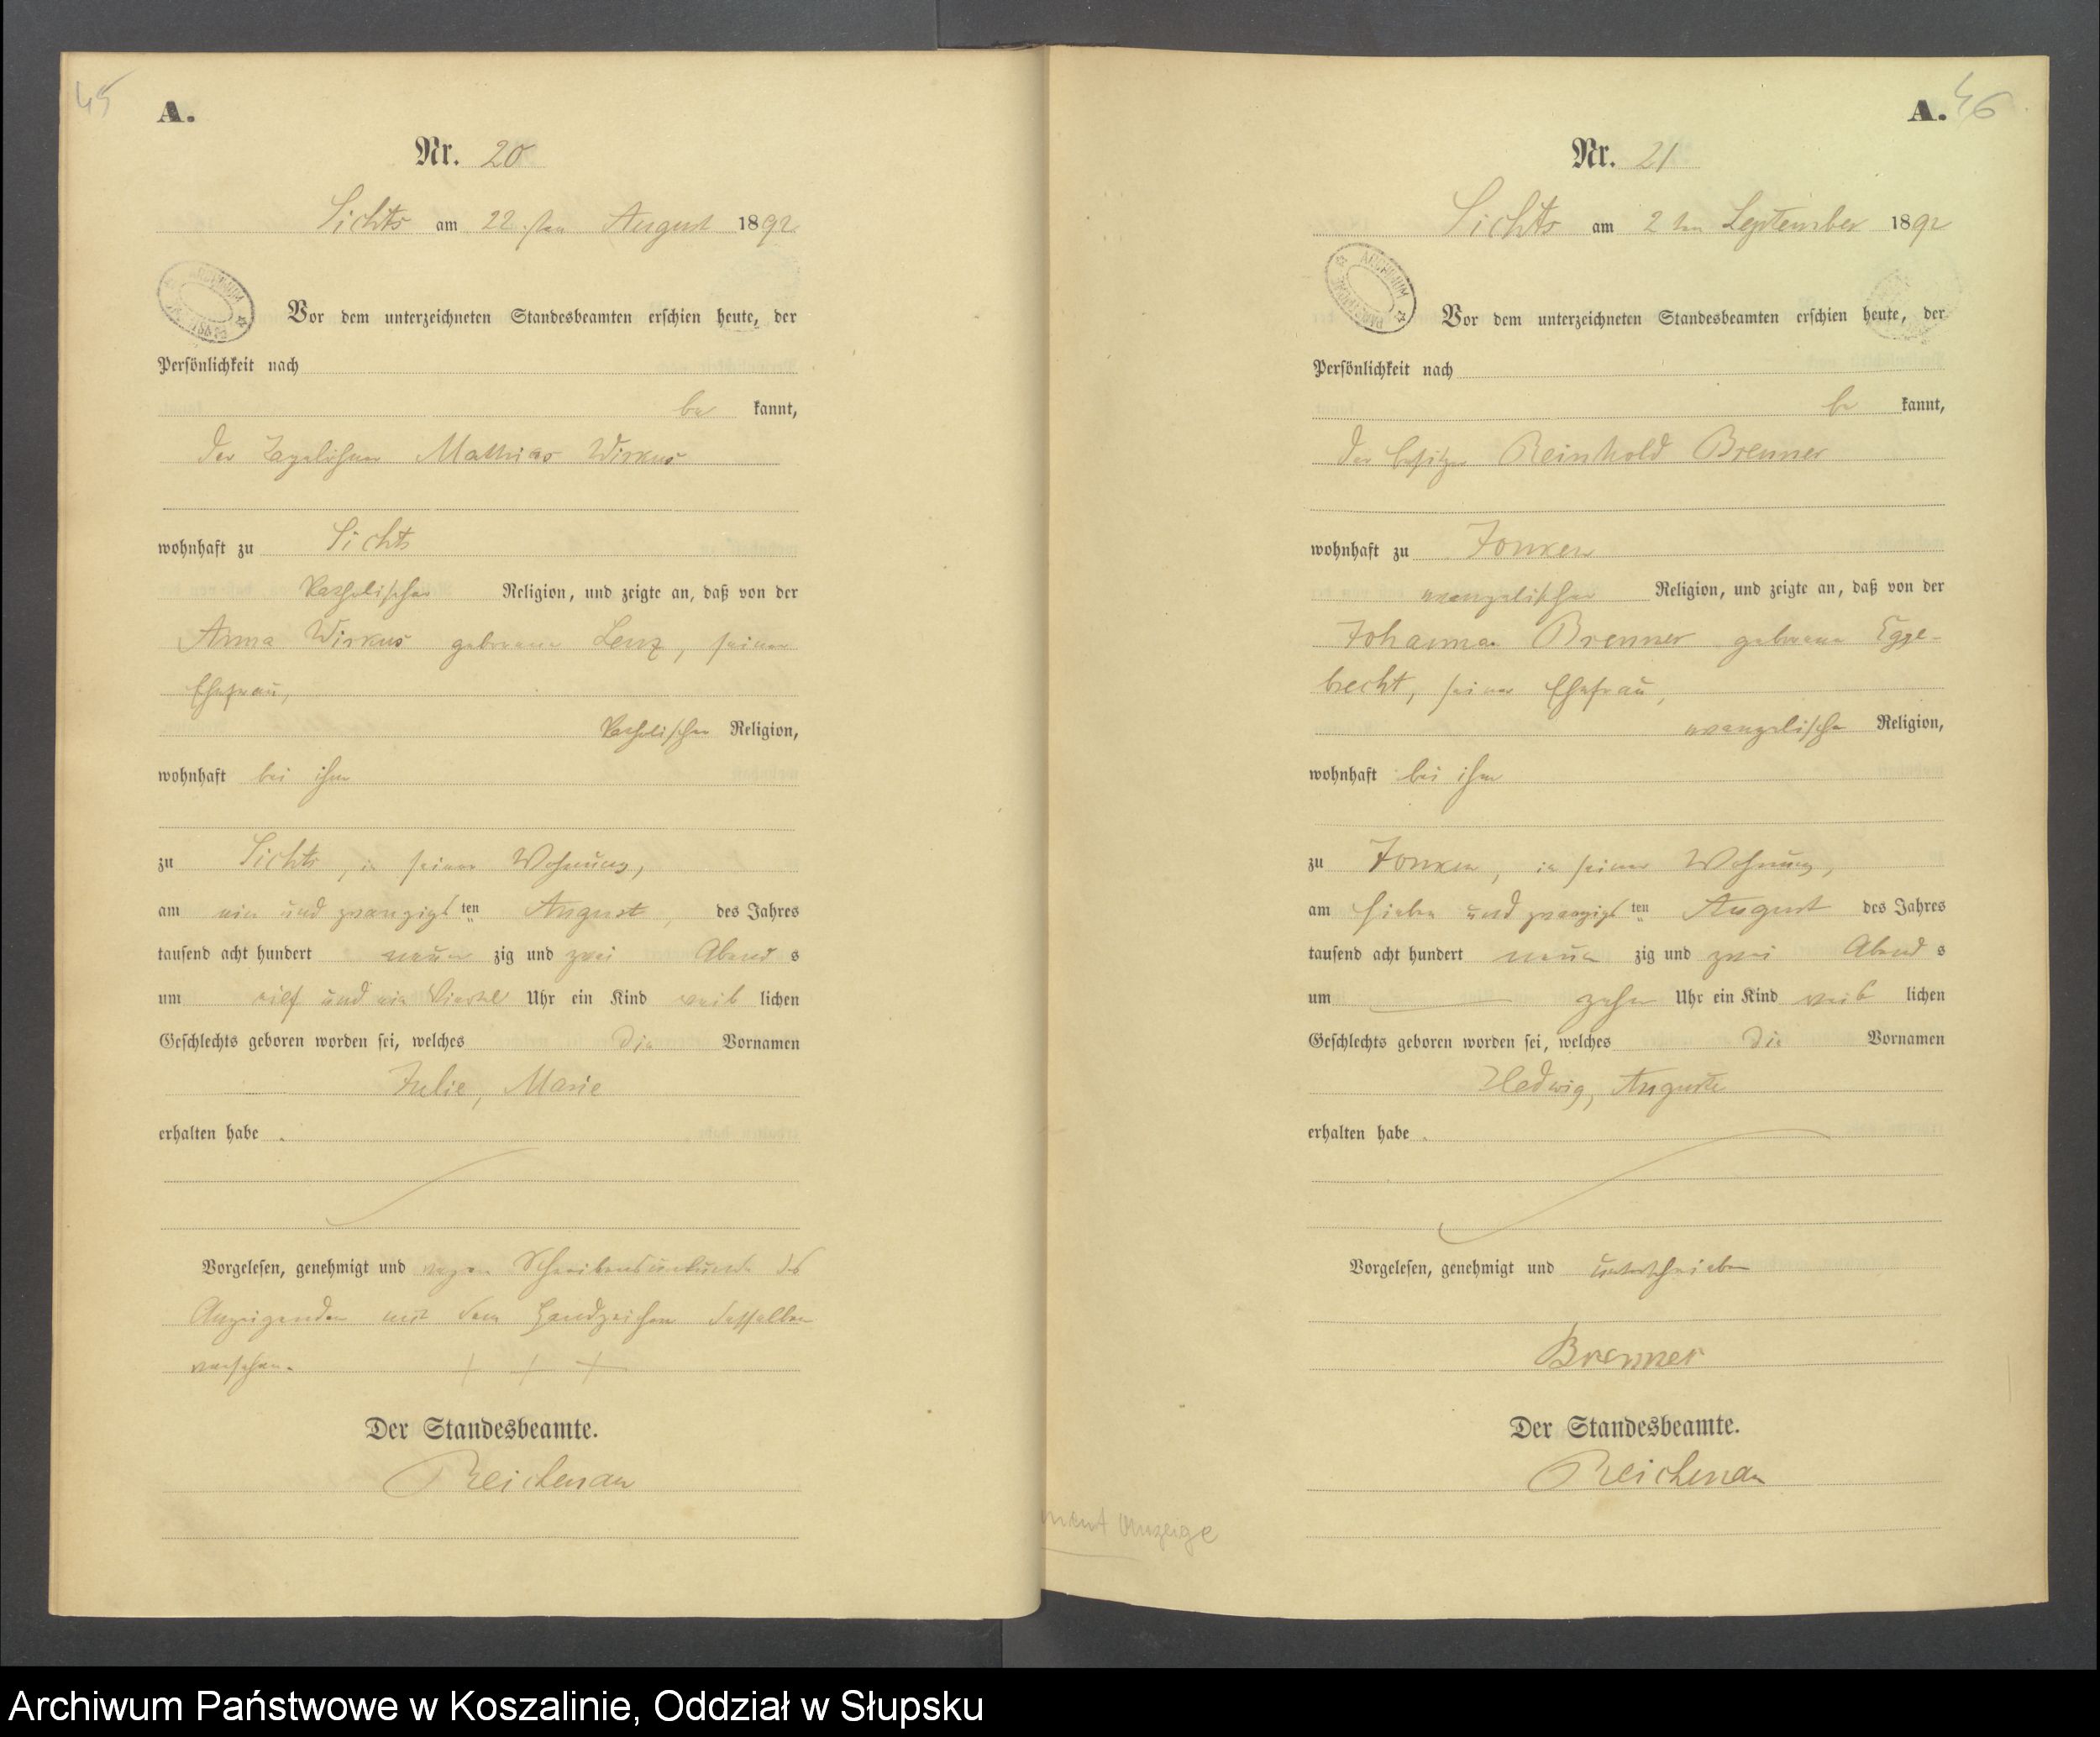 45
A.
Nr. 20
Lichts am 22.sten August 1892.
Vor dem unterzeichneten Standesbeamten erschien heute, der
Persönlichkeit nach
be kannt,
der Tagelöhner Mathias Wirkus
wohnhaft zu Lichts
katholischer Religion, und zeigte an, daß von der
Anna Wirkus geborene Lenz, seiner
Ehefrau,
katholischer Religion,
wohnhaft bei ihm
zu Lichts, in seiner Wohnung,
am ein und zwanzigsten August, des Jahres
tausend acht hundert neun zig und zwei Abend s
um elf und ein Viertel Uhr ein Kind weib lichen
Geschlechts geboren worden sei, welches die Vornamen
Julie, Marie
erhalten habe.
Vorgelesen, genehmigt und wegen Schreibensunkunde des
Anzeigenden mit dem Handzeichen desselben
versehen. + + +
Der Standesbeamte.
Reichenau
46
A.
Nr. 21
Lichts am 2ten September 1892
Vor dem unterzeichneten Standesbeamten erschien heute, der
Persönlichkeit nach
be kannt,
der Besitzer Reinhold Brenner
wohnhaft zu Jonken
evangelischer Religion, und zeigte an, daß von der
Johanna Brenner geborene Egge-
brecht, seiner Ehefrau,
evangelischer Religion,
wohnhaft bei ihm
zu Jonken, in seiner Wohnung,
am sieben und zwanzigsten August des Jahres
tausend acht hundert neun zig und zwei Abend s
um zehn Uhr ein Kind weib lichen
Geschlechts geboren worden sei, welches die Vornamen
Hedwig, Auguste
erhalten habe.
Vorgelesen, genehmigt und unterschrieben
Brenner
Der Standesbeamte.
Reichenau
Anzeige
Archiwum Państwowe w Koszalinie, Oddział w Słupsku